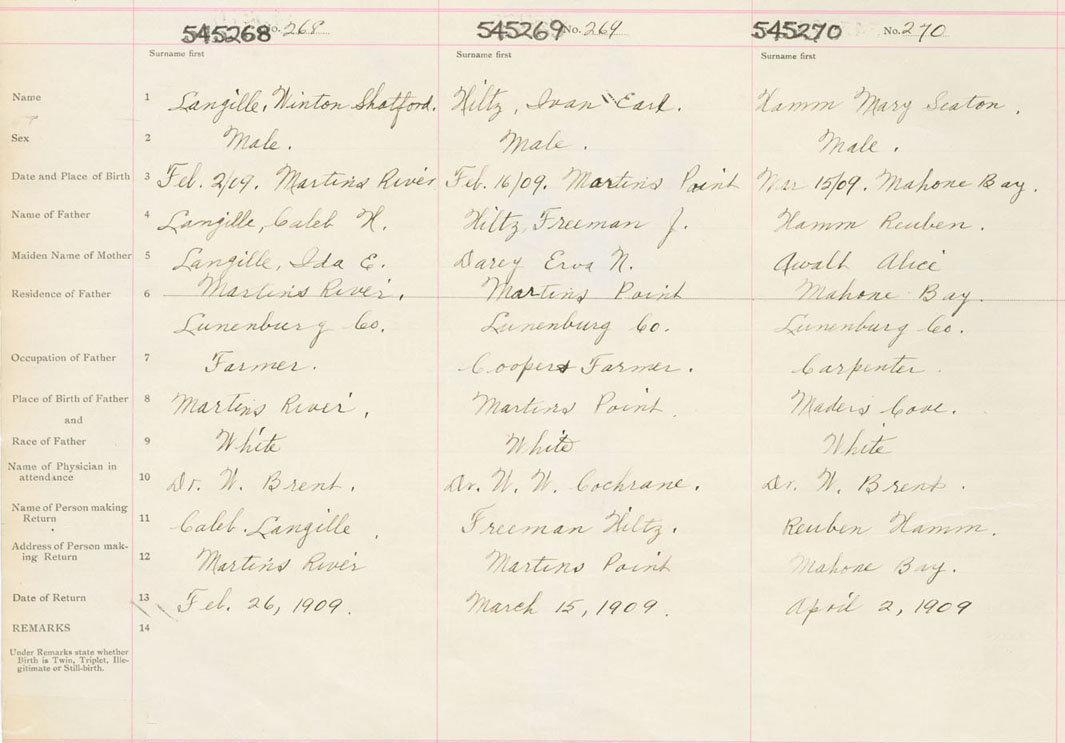 545268 No. 268 545269 No. 269 545270 No. 270
Surname first Surname first Surname first
Name 1 Langille, Winton Shatford. Hiltz, Ivan Earl. Hamm Mary Seaton.
Sex 2 Male. Male. Male.
Date and Place of Birth 3 Feb. 2/09. Martins River Feb. 16/09. Martins Point Mar 15/09. Mahone Bay.
Name of Father 4 Langille, Caleb H. Hiltz, Freeman J. Hamm Reuben.
Maiden Name of Mother 5 Langille, Ida E. Darey Erva N. Awalt Alice
Residence of Father 6 Martins River. Martins Point Mahone Bay.
Lunenburg Co. Lunenburg Co. Lunenburg Co.
Occupation of Father 7 Farmer. Cooper & Farmer. Carpenter.
Place of Birth of Father 8 Martins River. Martins Point. Maders Cove.
and
Race of Father 9 White White White
Name of Physician in
attendance 10 Dr. W. Brent. Dr. W. W. Cochrane. Dr. W. Brent.
Name of Person making
Return 11 Caleb Langille. Freeman Hiltz. Reuben Hamm.
Address of Person mak-
ing Return 12 Martins River Martins Point Mahone Bay.
Date of Return 13 Feb. 26, 1909. March 15, 1909. April 2, 1909
REMARKS 14
Under Remarks state whether
Birth is Twin, Triplet, Ille-
gitimate or Still-birth.